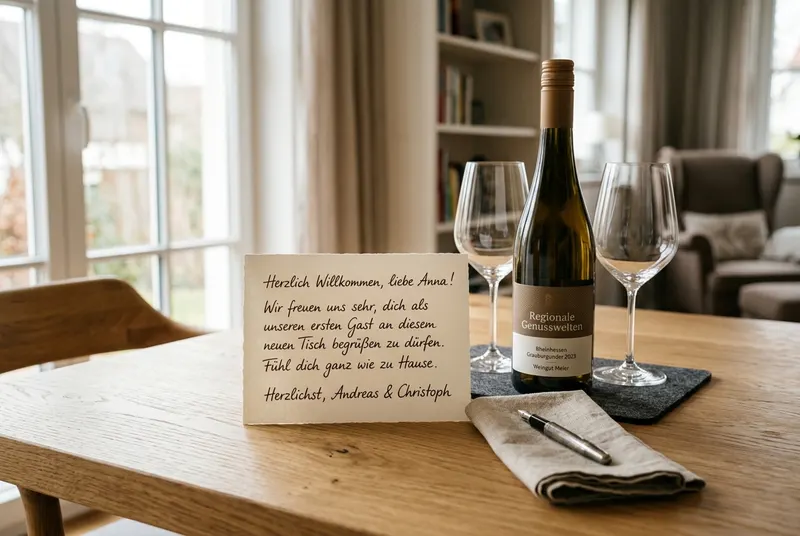 Herzlich Willkommen, liebe Anna!
Wir freuen uns sehr, dich als
unseren ersten Gast an diesem
neuen Tisch begrüßen zu dürfen.
Fühl dich ganz wie zu Hause.
Herzlichst, Andreas & Christoph
Regionale
Genusswelten
Rheinhessen
Grauburgunder 2023
Weingut Meier